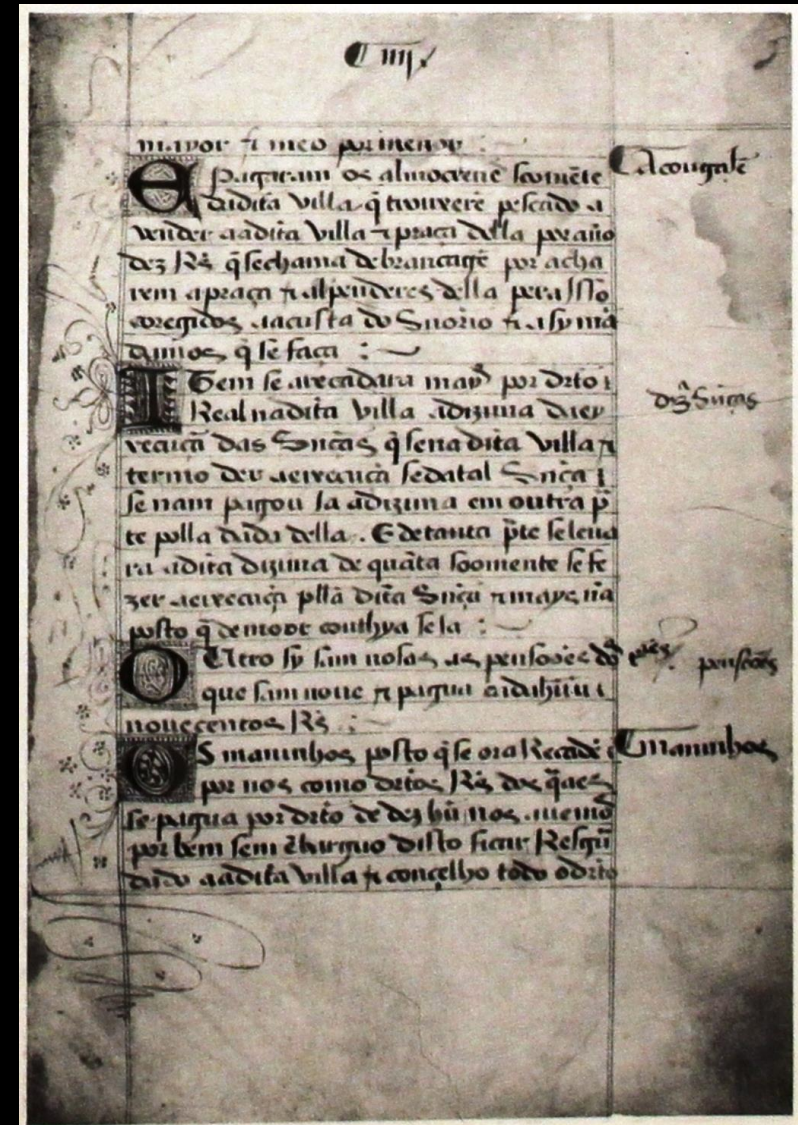 C iiij
mayor & meo por menor :
E Pagaram os almocreve soomēte
dadita villa q̃ trouverē pescado a
vender aadita villa & praça della por año
dez Rs̃ q̃ sechama debrancagē por acha
rem apraça & alpenderes della pera Isso
coregidos aacusta do Snorio & asy mã
damos q̃ se faça :
Açougajē
ITem se arecadara mays por drto
Real na dita villa adizima da ex
xecuçã das Snñças q̃ se na dita villa &
termo der aeixecuçã sedatal Snñça
se nam pagou Ja adizima em outra p̃
te polla dada della . E de tanta p̃te se leua
ra adita dizima de quãta soomente se fe
zer aeixecuçã pllã dita Snñça & mays nã
posto q̃ de moor conthya seJa :
dzª Snñças
OUtro sy sam nosas as pensoões dos tãẽs
que sam noue & pagua cadahũu
nouecentos Rs̃ :
pensões
OS maninhos posto q̃ se ora Recadē
por nos como drtos Rs̃ dos q̃aes
se pagua por drto de dez hũ nos avemos
por bem sem ẽbarguo disto ficar Resgũ
dado aadita villa & conçelho todo odrto
C maninhos